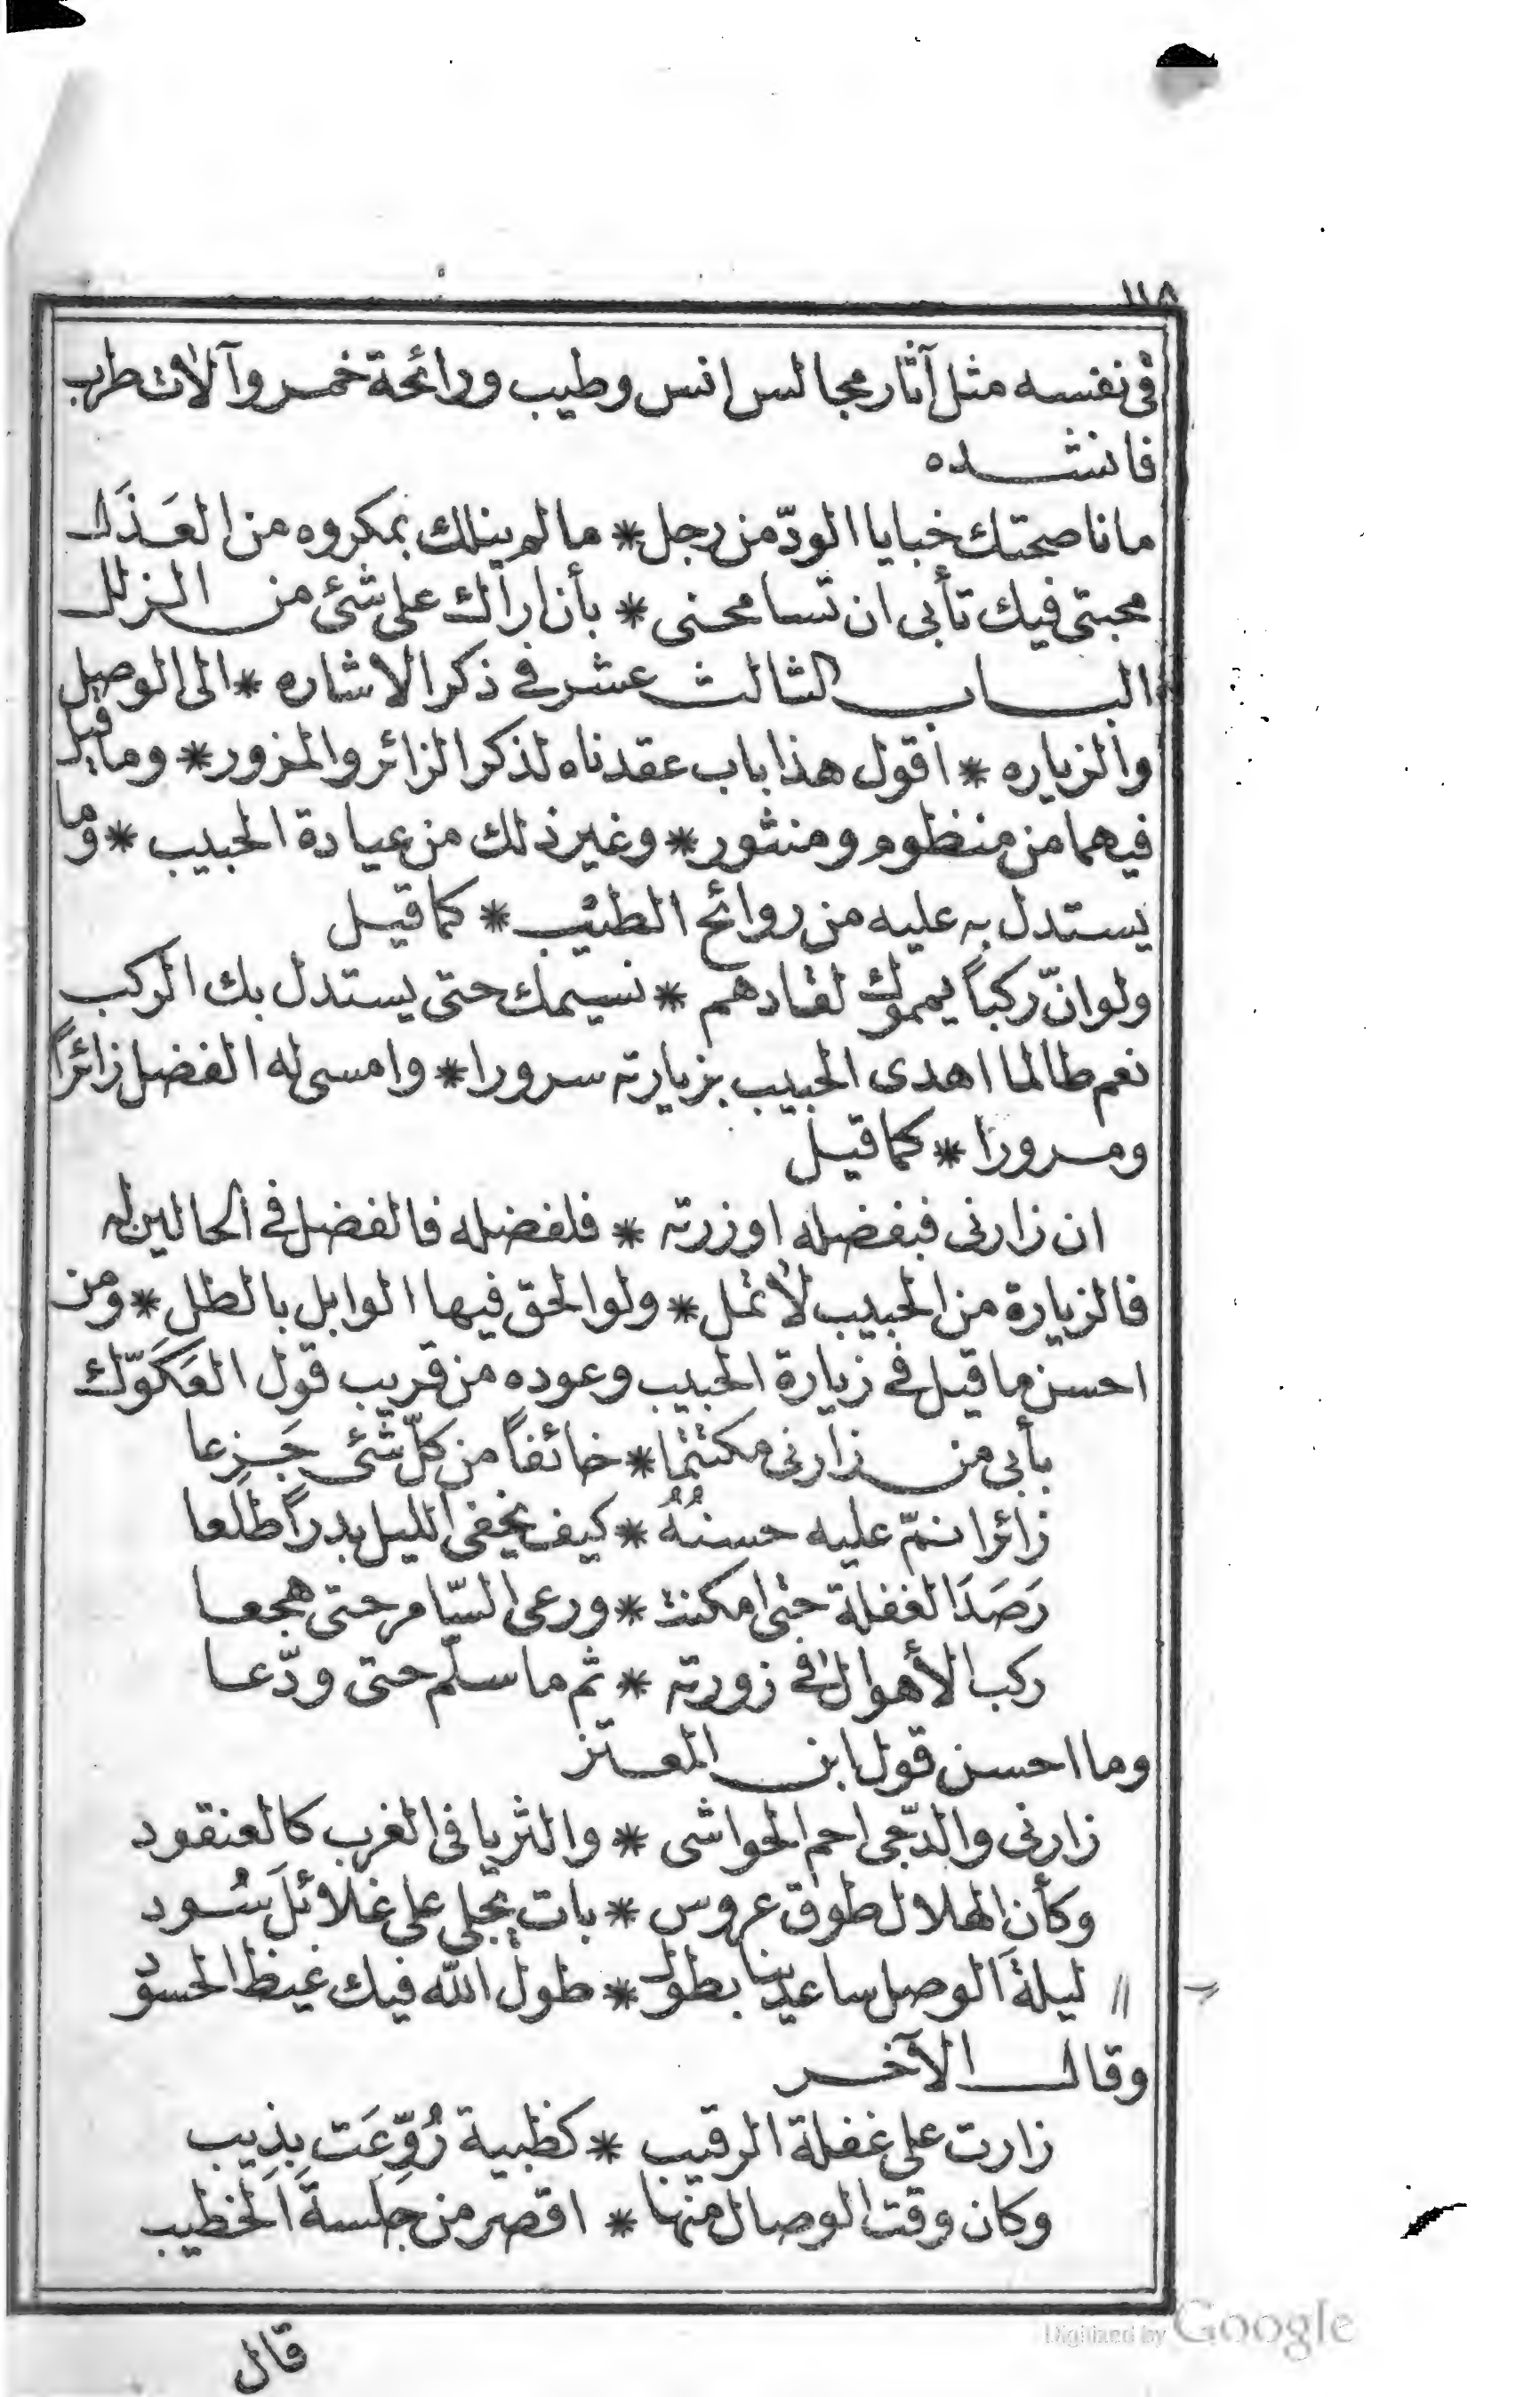 ١١٨
فى نفسه مثل آثار مجالس انس وطيب ورائحة خمر وآلات طرب
فانشده
ما ناصحتك خبايا الودّ من رجل * ما لم ينلك بمكروه من العَذَل
محبتى فيك تأبى ان تسامحنى * بأن اراك على شئ من الزلل
الباب الثالث عشر فى ذكر الاشاره * الى الوصل
والزياره * اقول هذا باب عقدناه لذكر الزائر والمزور * وما قيل
فيهما من منظوم ومنثور * وغير ذلك من عيادة الحبيب * وما
يستدل به عليه من روائح الطيب * كما قيل
ولو انّ ركباً يمموك لقادهم * نسيمك حتى يستدل بك الركب
نعم طالما اهدى الحبيب بزيارته سرورا * وامسى له الفضل زائراً
ومزورا * كما قيل
ان زارنى فبفضله او زرته * فلفضله فالفضل فى الحالين له
فالزيارة من الحبيب لأتمل * ولو الحق فيها الوابل بالطل * ومن
احسن ما قيل فى زيارة الحبيب وعوده من قريب قول العَكَوّك
بأبى من زارنى مكتتما * خائفاً من كلّ شئ جَزِعا
زائرا نمّ عليه حسنُهُ * كيف يخفى الليل بدراً طلعا
رَصَدَ الغفلة حتى امكنت * ورعى السّامر حتى هجعا
ركب الأهوال فى زورته * ثم ما سلّم حتى ودّعا
وما احسن قول ابن المعتز
زارنى والدّجى احم الحواشى * والثريا فى الغرب كالعنقود
وكأن الهلال طوق عروس * بات يجلى على غلائل سُود
ليلةَ الوصل ساعدينا بطول * طول الله فيك غيظ الحسود
وقال الآخر
زارت على غفلة الرقيب * كظبية رُوّعَت بذيب
وكان وقت الوصال منها * اقصر من جلسة الخطيب
قال
Digitized by Google